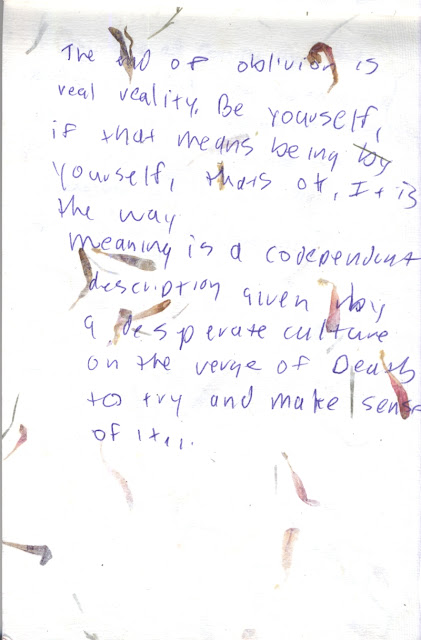 The end of oblivion is
real reality. Be yourself,
if that means being by
yourself, thats ok, It is
the way
meaning is a codependent
description given by
a desperate culture
on the verge of Death
to try and make sense
of it...